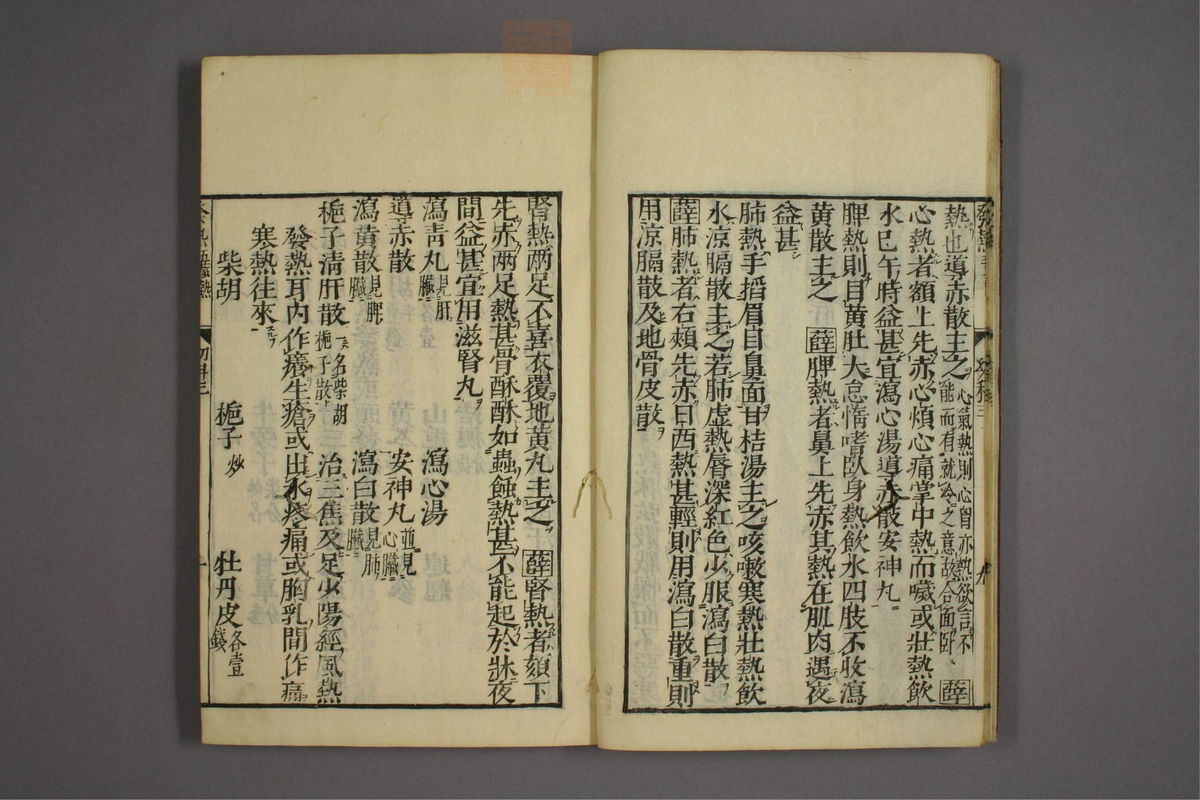 熱也導赤散主之心氣熱則心胷亦熱欲言不能而有就冷之意故合面卧薛
心熱者額上先赤心煩心痛掌中熱而噦或壯熱飲
水巳午時益甚宜瀉心湯導赤散安神丸
脾熱則目黄肚大怠惰嗜卧身熱飲水四肢不收瀉
黄散主之薛脾熱者鼻上先赤其熱在肌肉遇夜
益甚
肺熱手搯眉目鼻面甘桔湯主之咳嗽寒熱壯熱飲
水凉膈散主之若肺虚熱唇深紅色少服瀉白散
薛肺熱者右頰先赤日西熱甚輕則用瀉白散重則
用凉膈散及地骨皮散
九
腎熱两足不喜衣覆地黄丸主之薛腎熱者頦下
先赤两足熱甚骨酥酥如蟲蝕熱甚不能起於牀夜
間益甚宜用滋腎丸
瀉青丸見肝臓 瀉心湯
導赤散 安神丸並見心臓
瀉黄散見脾臓 瀉白散見肺臓
梔子清肝散一名柴胡梔子散 治三焦及足少陽經風熱
發熱耳内作癢生瘡或出水疼痛或胸乳間作痛
寒熱往來
柴胡 梔子炒 牡丹皮各壹錢